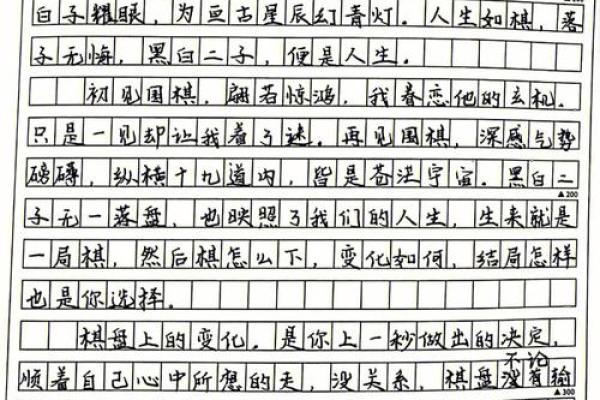 白子耀眼，为亘古星辰幻青灯。人生如棋，落
子无悔，黑白二子，便是人生。
初见围棋，翩若惊鸿，我眷恋他的玄机。
只是一见却让我着了迷。再见围棋，深感气势
磅礴，纵横十九道内，皆是苍茫宇宙。黑白二
▲200
子无一落盘，也映照了我们的人生，生来就是
一局棋，然后棋怎么下，变化如何，结局怎样
也是你选择。
棋盘上的变化。是你上一秒做出的决定，
不论
顺着自己心中所想的走，没关系，棋盘没有输
▲300